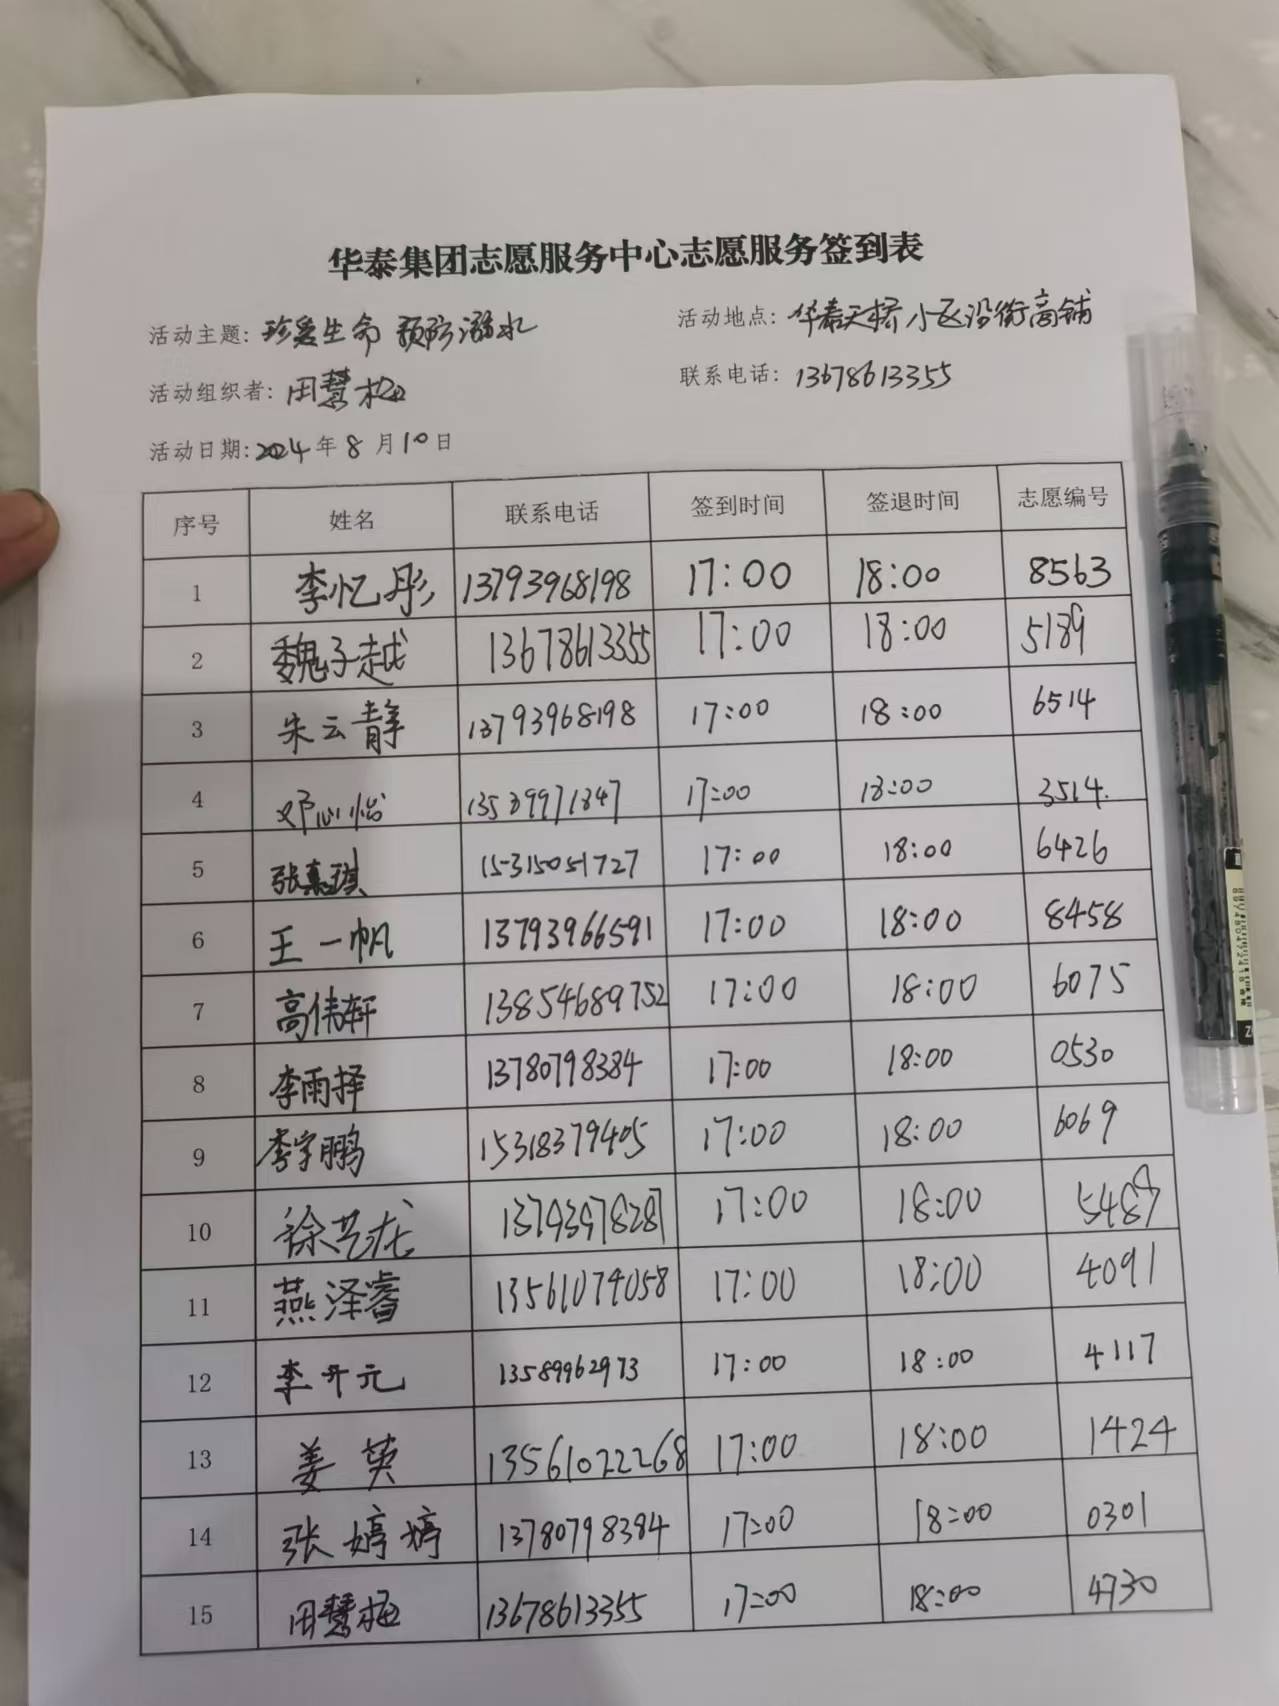 华泰集团志愿服务中心志愿服务签到表
活动主题: 珍爱生命 预防溺水 活动地点: 华泰天桥小区沿街商铺
活动组织者: 田慧梅 联系电话: 13678613355
活动日期: 2024年8月10日
序号 姓名 联系电话 签到时间 签退时间 志愿编号
1 李忆彤 13793968198 17:00 18:00 8563
2 魏子越 13678613355 17:00 18:00 5189
3 朱云静 13793968198 17:00 18:00 6514
4 邓心怡 13589971847 17:00 18:00 3514.
5 张嘉琪 15315051727 17:00 18:00 6426
6 王一帆 13793966591 17:00 18:00 8458
7 高伟轩 13854689752 17:00 18:00 6075
8 李雨择 13780798384 17:00 18:00 0530
9 李宇鹏 15318379405 17:00 18:00 6069
10 徐艺龙 13793978287 17:00 18:00
11 燕泽睿 13561074058 17:00 18:00 4091
12 李开元 13589962973 17:00 18:00 4117
13 姜英 13561022268 17:00 18:00 1424
14 张婷婷 13780798384 17:00 18:00 0301
15 田慧梅 13678613355 17:00 18:00 4730